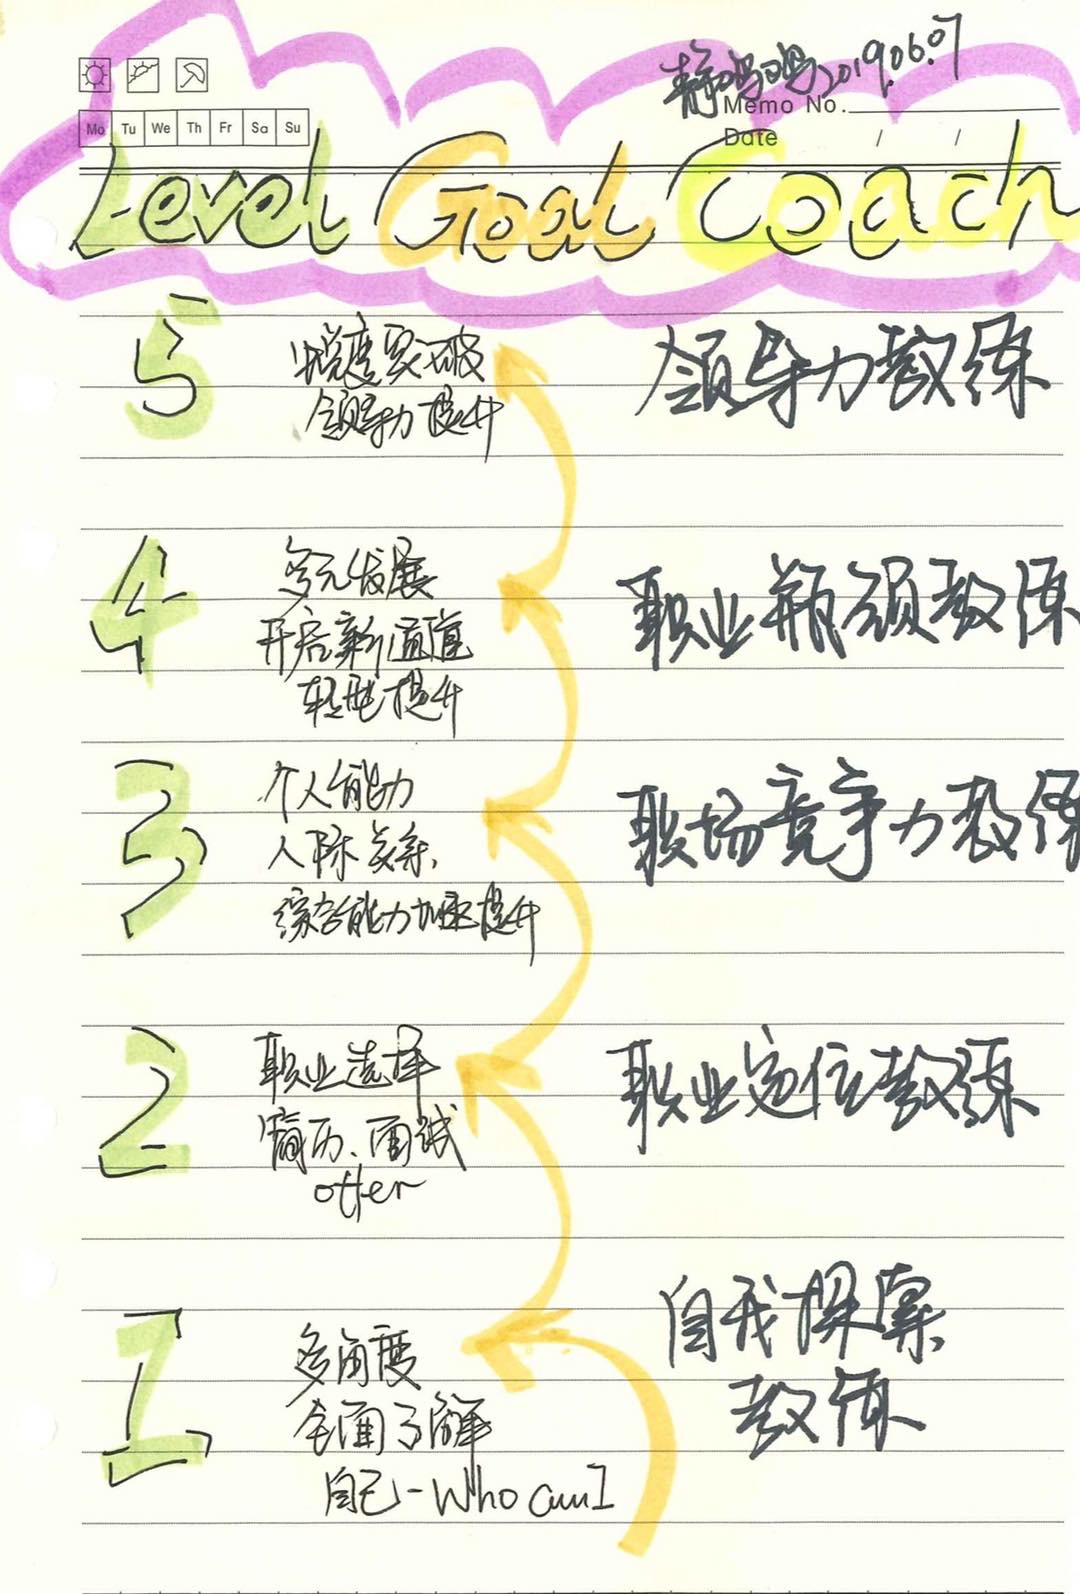 静鸣鸣2019.06.07
Memo No.
Mo Tu We Th Fr Sa Su
Date / /
Level Goal Coach
5 锐度突破 领导力教练
领导力提升
4 多元发展 职业瓶颈教练
开启新篇章
转型提升
3 个人能力 职场竞争力教练
人际关系
综合能力加速提升
2 职业选择 职业定位教练
简历、面试
offer
1 多角度 自我探索
全面了解 教练
自己-Who am I